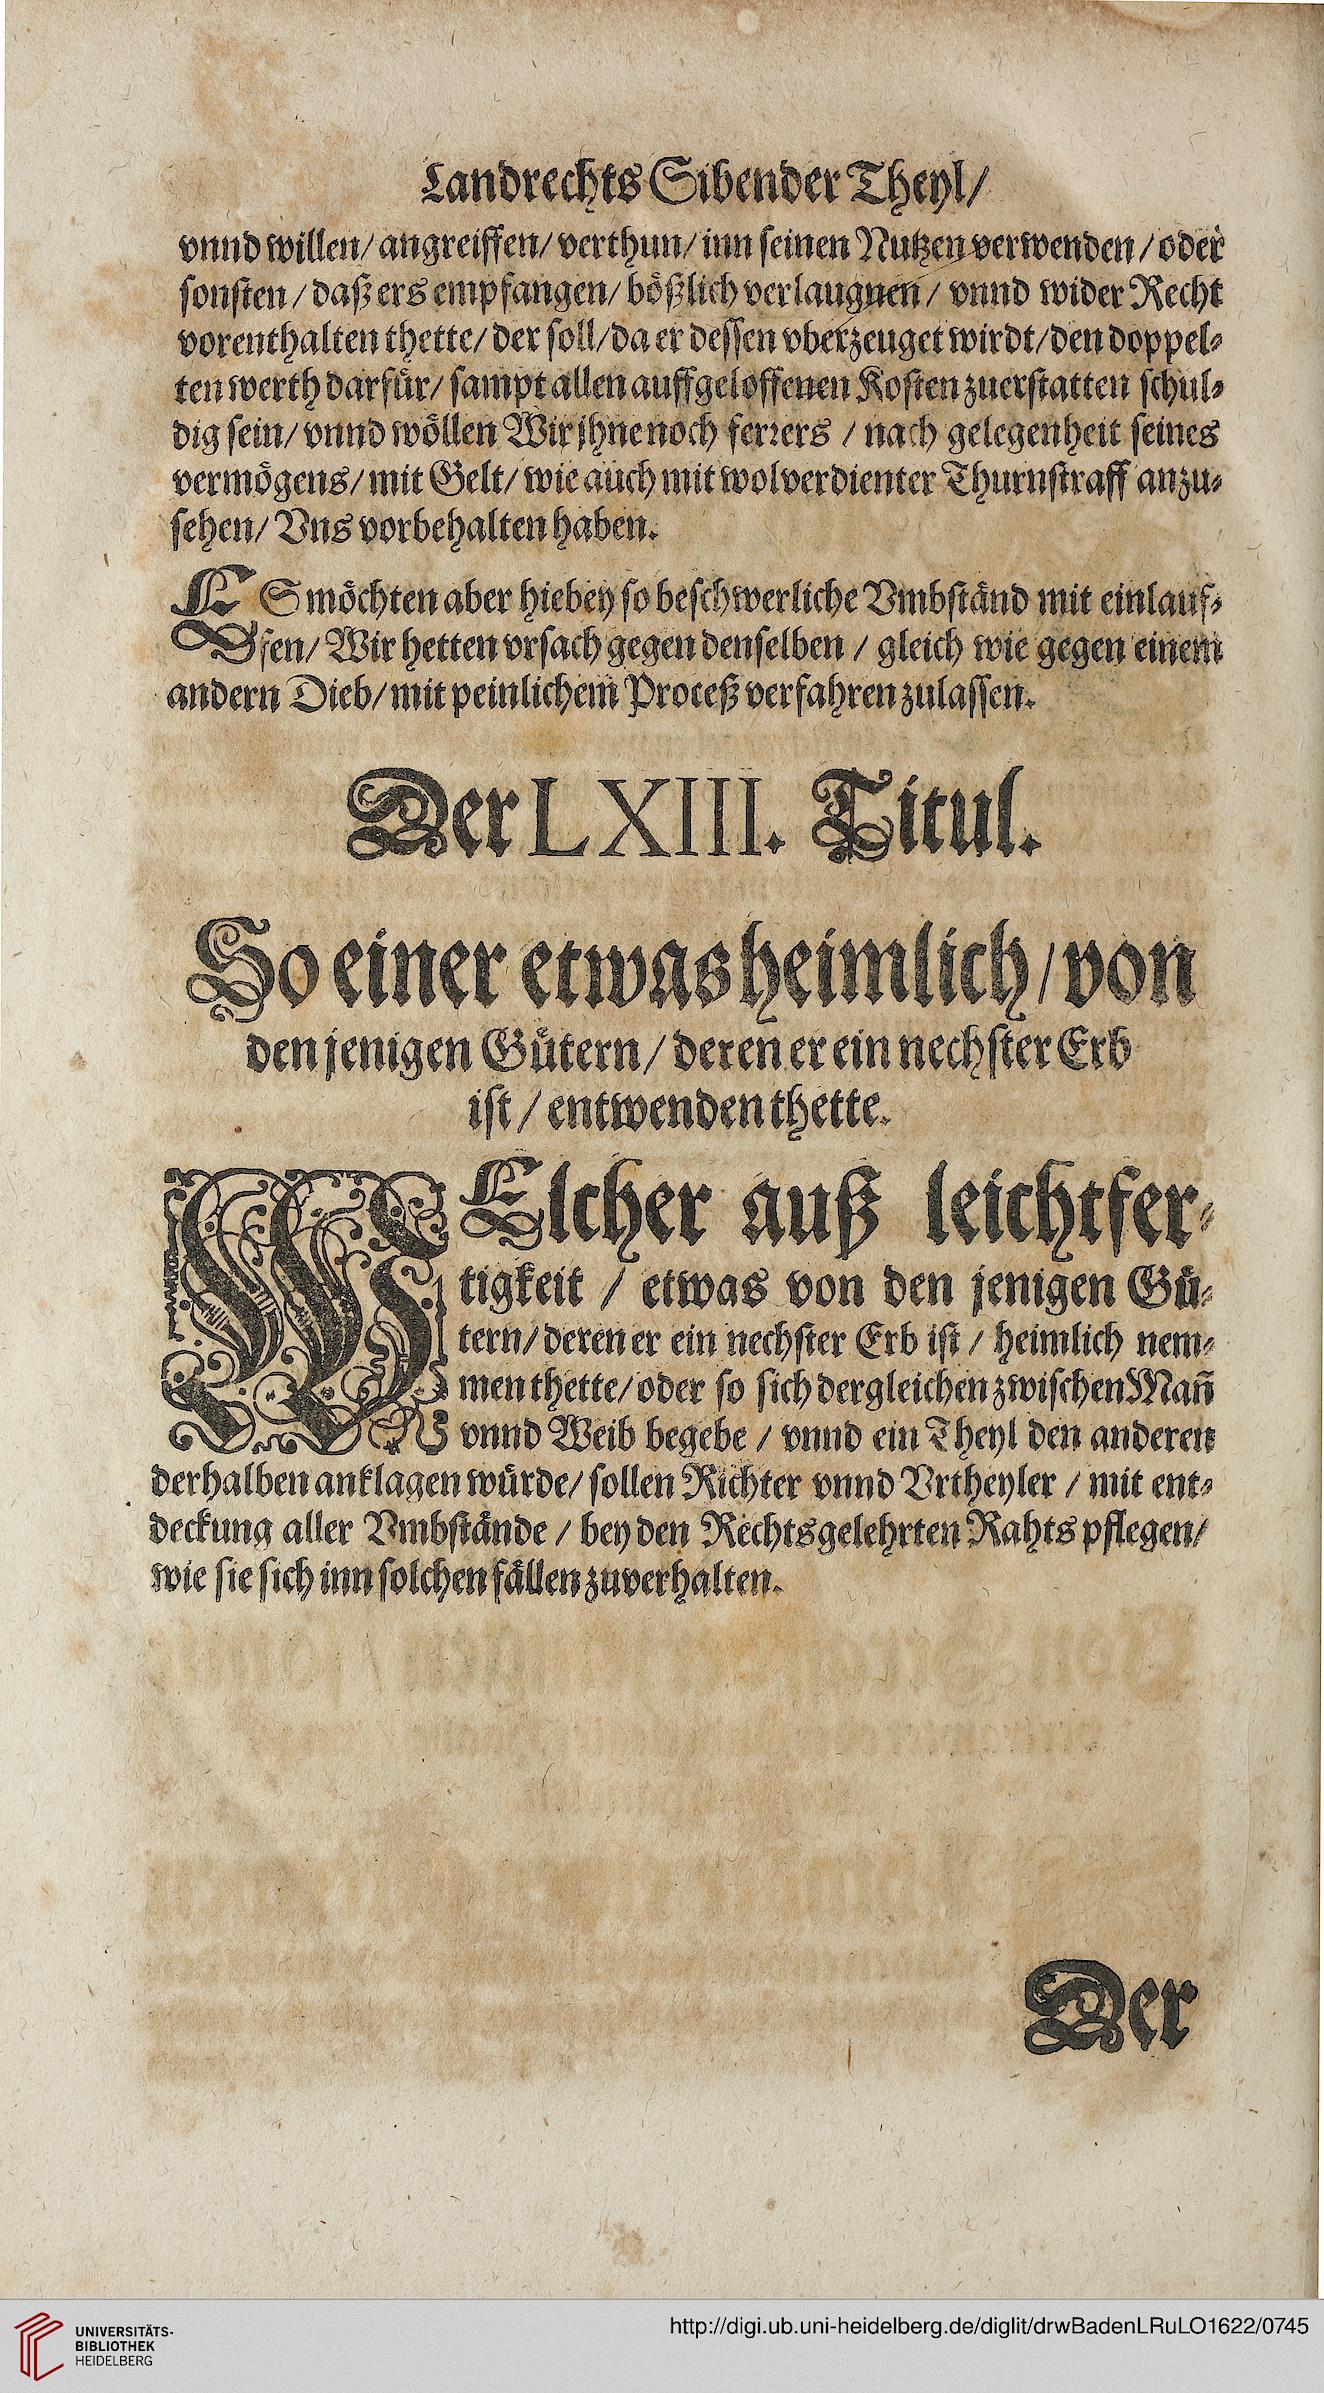 Landrechts Sibender Theyl/
vnnd willen/ angreiffen/ verthun/ inn seinen Nutzen verwenden / oder
sonsten / daß ers empfangen/ bößlich verlaugnen / vnnd wider Recht
vorenthalten thette/ der soll/ da er dessen vberzeuget wirdt/ den doppel-
ten werth darfür/ sampt allen auffgeloffenen Kosten zuerstatten schul-
dig sein/ vnnd wöllen Wir jhne noch ferrers / nach gelegenheit seines
vermögens/ mit Gelt/ wie auch mit wolverdienter Thurnstraff anzu-
sehen/ Vns vorbehalten haben.
ES möchten aber hiebey so beschwerliche Vmbständ mit einlauf-
fen/ Wir hetten vrsach gegen denselben / gleich wie gegen einem
andern Dieb/ mit peinlichem Proceß verfahren zulassen.
Der LXIII. Titul.
So einer etwas heimlich / von
den jenigen Gütern / deren er ein nechster Erb
ist / entwenden thette.
WElcher auß leichtfer-
tigkeit / etwas von den jenigen Gü-
tern/ deren er ein nechster Erb ist / heimlich nem-
men thette/ oder so sich dergleichen zwischen Mañ
vnnd Weib begebe / vnnd ein Theyl den anderen
derhalben anklagen würde/ sollen Richter vnnd Vrtheyler / mit ent-
deckung aller Vmbstände / bey den Rechtsgelehrten Rahts pflegen/
wie sie sich inn solchen fällen zuverhalten.
Der
UNIVERSITÄTS-
BIBLIOTHEK
HEIDELBERG
http://digi.ub.uni-heidelberg.de/diglit/drwBadenLRuLO1622/0745